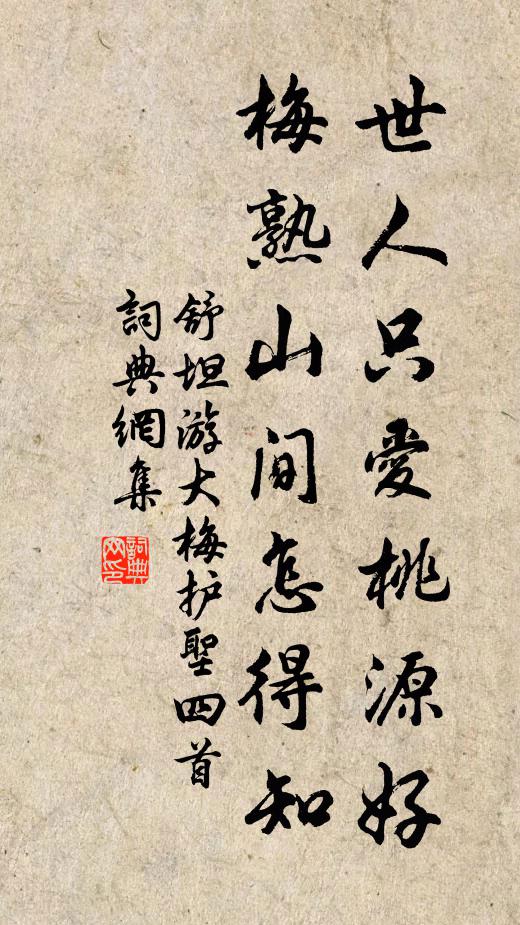 世人只愛桃源好
梅熟山間怎得知
舒坦游大梅护聖四首
詞典網集
詞典网印